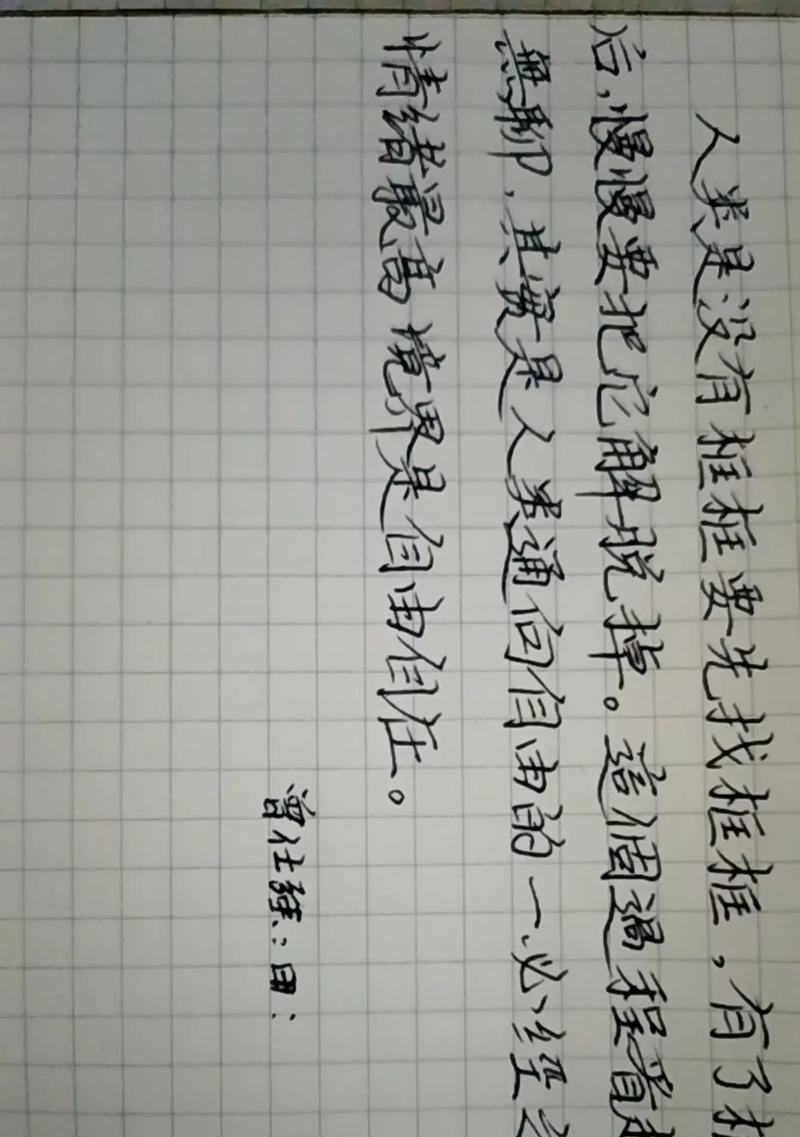 人类是没有框框要先找框框，有了
后，慢慢要把它解脱掉。這個過程看
無聊，其實是人类通向自由的一必经
情绪最高境界是自由自在。
曾仕強：曰：